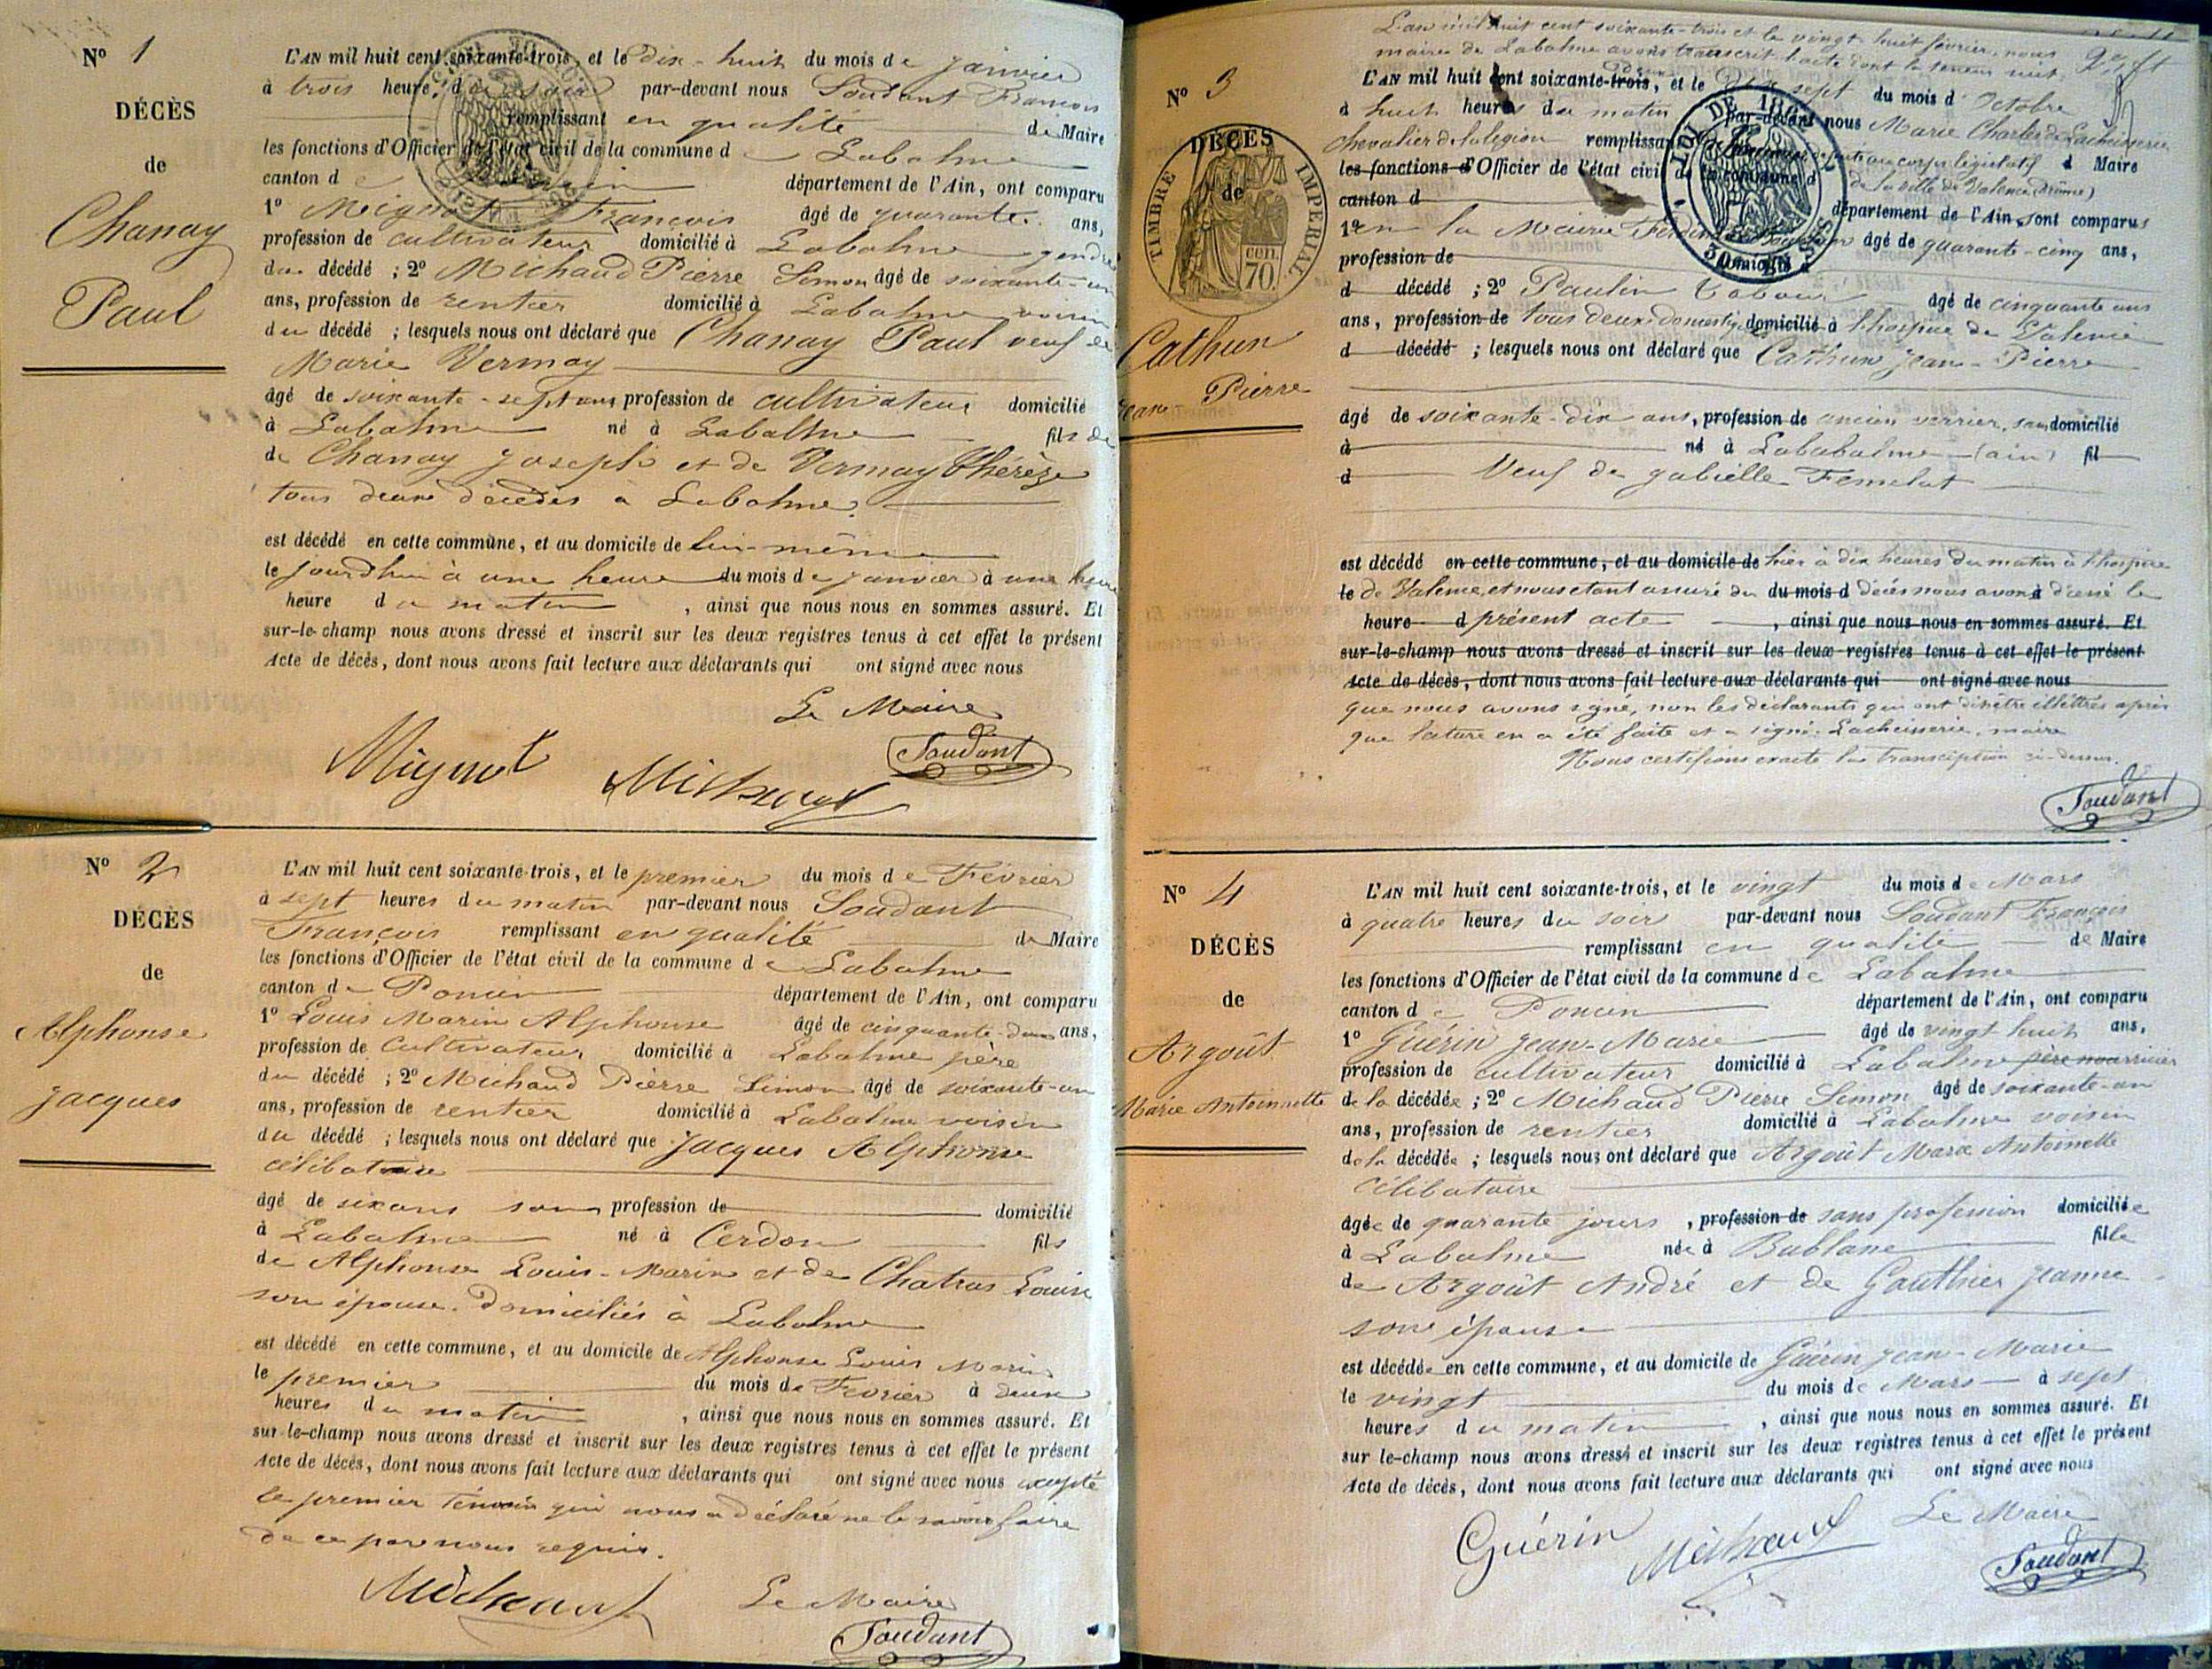 N° 1
DÉCÈS
de
Chanay
Paul
L'AN mil huit cent soixante-trois, et le dix-huit du mois de janvier
à trois heures du soir par-devant nous Soudant François
remplissant en qualité de Maire
les fonctions d'Officier de l'état civil de la commune de Labalme
canton de département de l'Ain, ont comparu
1° Mignot François âgé de quarante ans,
profession de cultivateur domicilié à Labalme gendre
du décédé ; 2° Michaud Pierre Simon âgé de soixante-un
ans, profession de rentier domicilié à Labalme voisin
du décédé ; lesquels nous ont déclaré que Chanay Paul veuf de
Marie Vermay
âgé de soixante-sept ans profession de cultivateur domicilié
à Labalme né à Labalme fils de
de Chanay Joseph et de Vermay Thérèze
tous deux décédés à Labalme.
est décédé en cette commune, et au domicile de lui-même
le jourdhui à une heure du mois de janvier à une heure
heure du matin , ainsi que nous nous en sommes assuré. Et
sur-le-champ nous avons dressé et inscrit sur les deux registres tenus à cet effet le présent
Acte de décès, dont nous avons fait lecture aux déclarants qui ont signé avec nous
Le Maire
Mignot Michaud Soudant
N° 2
DÉCÈS
de
Alphonse
Jacques
L'AN mil huit cent soixante-trois, et le premier du mois de Février
à sept heures du matin par-devant nous Soudant
François remplissant en qualité de Maire
les fonctions d'Officier de l'état civil de la commune de Labalme
canton de Poncin département de l'Ain, ont comparu
1° Louis Marin Alphonse âgé de cinquante-deux ans,
profession de Cultivateur domicilié à Labalme père
du décédé ; 2° Michaud Pierre Simon âgé de soixante-un
ans, profession de rentier domicilié à Labalme voisin
du décédé ; lesquels nous ont déclaré que Jacques Alphonse
célibataire
âgé de six ans sans profession de domicilié
à Labalme né à Cerdon fils
de Alphonse Louis-Marin et de Chatras Louise
son épouse. Domiciliés à Labalme
est décédé en cette commune, et au domicile de Alphonse Louis Marin
le premier du mois de Février à deux
heures du matin , ainsi que nous nous en sommes assuré. Et
sur-le-champ nous avons dressé et inscrit sur les deux registres tenus à cet effet le présent
Acte de décès, dont nous avons fait lecture aux déclarants qui ont signé avec nous excepté
le premier témoin qui nous a déclaré ne le savoir faire
de ce par nous requis.
Michaud Le Maire
Soudant
L'an mil huit cent soixante-trois et le vingt-huit février, nous
maire de Labalme avons transcrit l'acte dont la teneur suit
N° 3
DÉCÈS
de
TIMBRE IMPERIAL
CEN. 70.
Cathun
Jean-Pierre
L'AN mil huit cent soixante-trois, et le dix sept du mois d'Octobre
à huit heures du matin par-devant nous Marie Charles de Lacheisserie
chevalier de la légion remplissant député au corps législatif d Maire
les fonctions d'Officier de l'état civil de la commune d de la ville de Valence (Drôme)
LOI DE 18
canton d département de l'Ain, sont comparus
1° en la Mairie âgé de quarante-cinq ans,
profession de domicilié à
d décédé ; 2° Paulin âgé de cinquante ans
ans, profession de tous deux domestiques domicilié à l'hospice de Valence
d décédé ; lesquels nous ont déclaré que Cathun Jean-Pierre
âgé de soixante-dix ans, profession de ancien verrier, sans domicilié
à né à Labalme (ain) fil
d Veuf de gabielle Femelat
est décédé en cette commune, et au domicile de hier à dix heures du matin à l'hospice
le de Valence, et nous etant assuré du du mois d décès nous avons d dressé le
heure d présent acte , ainsi que nous nous en sommes assuré. Et
sur-le-champ nous avons dressé et inscrit sur les deux registres tenus à cet effet le présent
Acte de décès, dont nous avons fait lecture aux déclarants qui ont signé avec nous
que nous avons signé, non les déclarants qui ont dit être illéttrés après
que lecture en a été faite et a signé: Lacheisserie, maire
Nous certifions exacte la transcription ci-dessus.
Soudant
N° 4
DÉCÈS
de
Argoût
Marie Antoinette
L'AN mil huit cent soixante-trois, et le vingt du mois de Mars
à quatre heures du soir par-devant nous Soudant François
remplissant en qualité de Maire
les fonctions d'Officier de l'état civil de la commune de Labalme
canton de Poncin département de l'Ain, ont comparu
1° Guérin Jean-Marie âgé de vingt huit ans,
profession de cultivateur domicilié à Labalme père nourricier
de la décédée ; 2° Michaud Pierre Simon âgé de soixante-un
ans, profession de rentier domicilié à Labalme voisin
de la décédée ; lesquels nous ont déclaré que Argoût Marie Antoinette
célibataire
âgée de quarante jours , profession de sans profession domiciliée
à Labalme née à Bublane fille
de Argoût André et de Gauthier Jeanne
son épouse
est décédée en cette commune, et au domicile de Guérin Jean-Marie
le vingt du mois de Mars à sept
heures du matin , ainsi que nous nous en sommes assuré. Et
sur le-champ nous avons dressé et inscrit sur les deux registres tenus à cet effet le présent
Acte de décès, dont nous avons fait lecture aux déclarants qui ont signé avec nous
Guérin Michaud Le Maire
Soudant